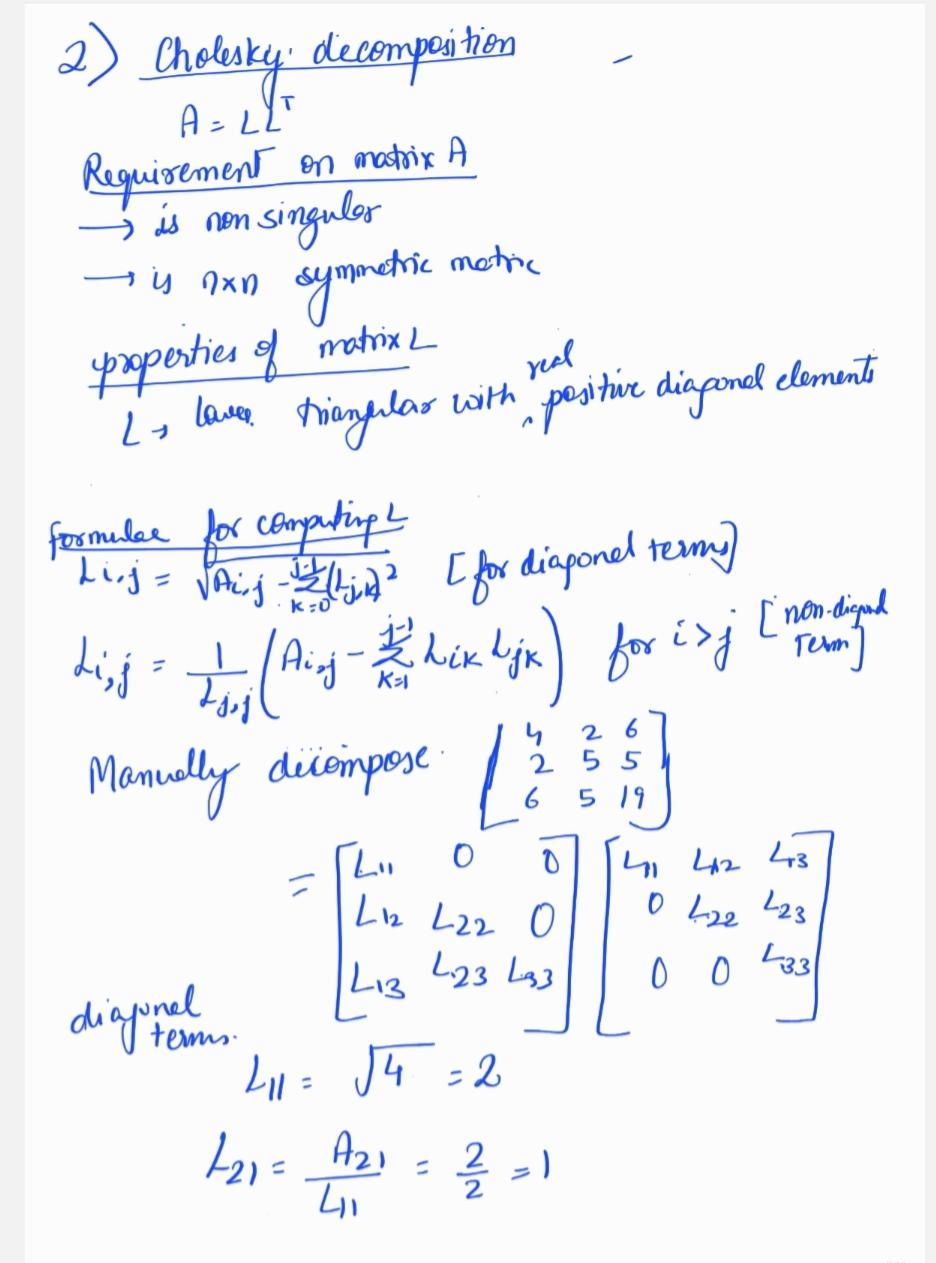 2) Cholesky decomposition
A = LLᵀ
Requirement on matrix A
→ is non singular
→ is n×n symmetric matric
properties of matrix L
real
L → lower triangular with ‸ positive diagonal elements
formulae for computing L
Li,j = √(Ai,j - Σ_{k=0}^{j-1} (Lj,k)²) [for diagonal terms]
Li,j = 1/Lj,j (Ai,j - Σ_{k=1}^{j-1} Lik Ljk) for i>j [non-diagonal Term]
Manually decompose
[4 2 6
2 5 5
6 5 19]
= [L11 0 0] [L11 L12 L13]
[L12 L22 0] [0 L22 L23]
[L13 L23 L33] [0 0 L33]
diagonal
terms.
L11 = √4 = 2
L21 = A21/L11 = 2/2 = 1